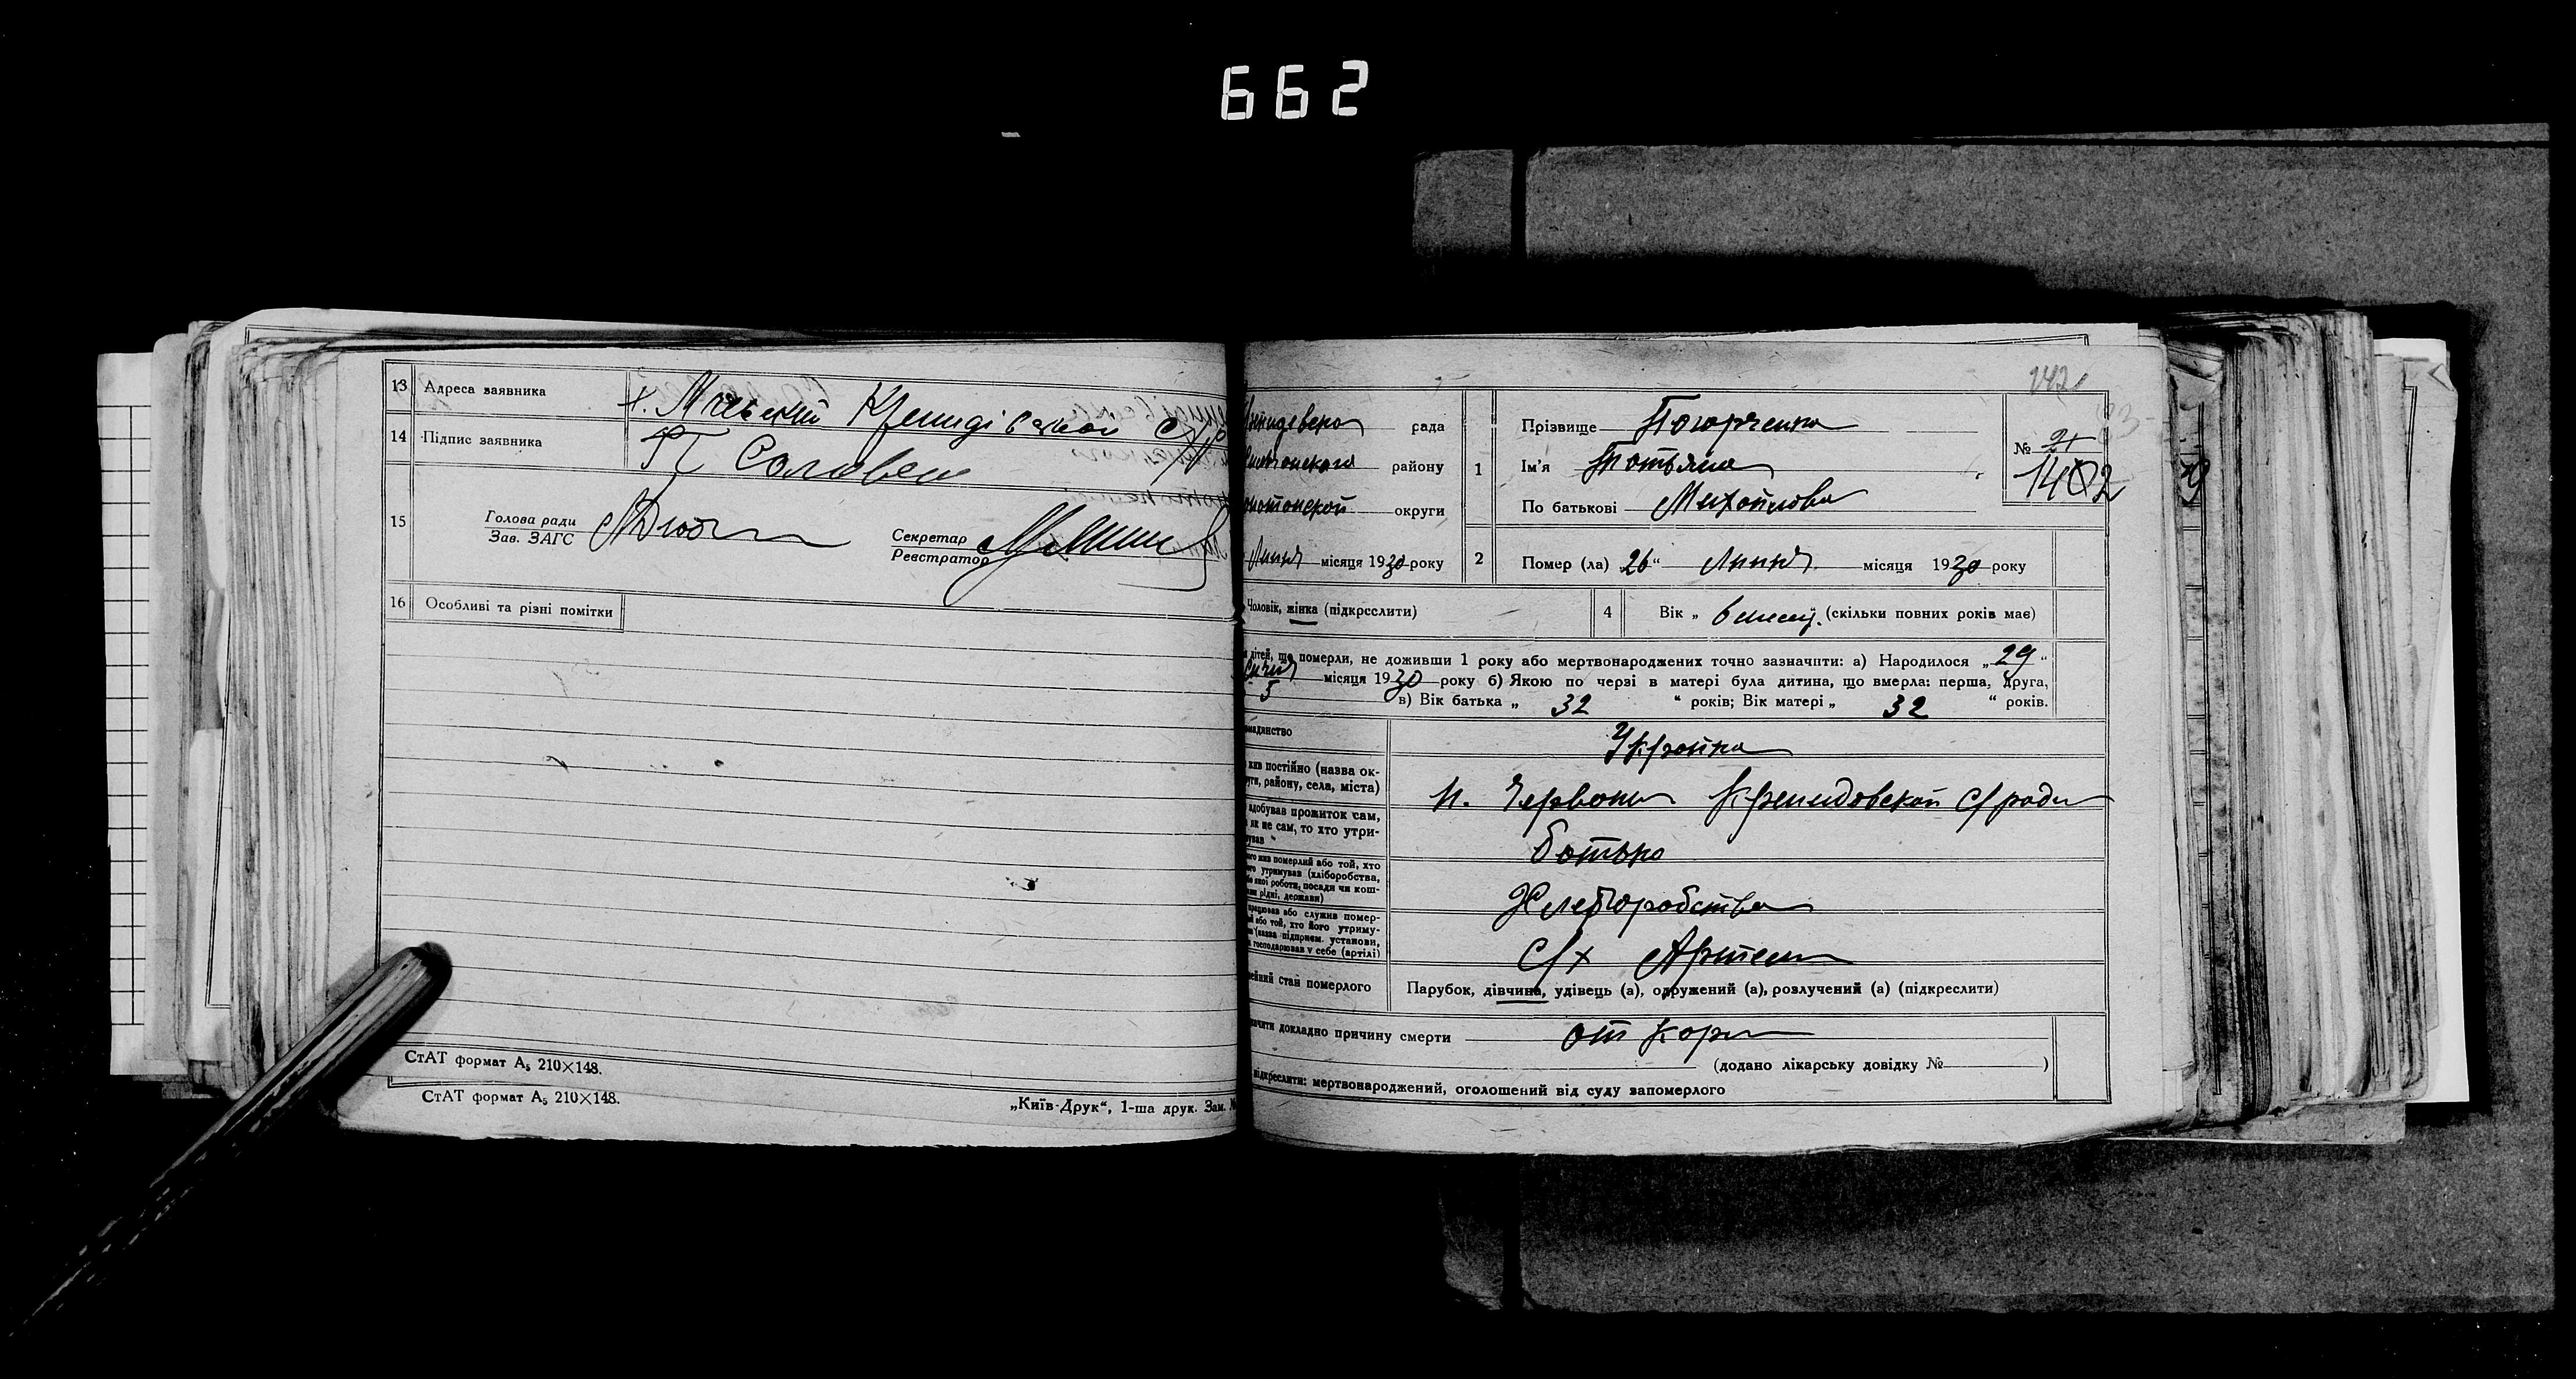 662
13 Адреса заявника х. Мисский Кремидівской С/р
14 Підпис заявника П Соловей
15 Голова ради
Зав. ЗАГС
Секретар
Реєстратор
16 Особливі та різні помітки
СтАТ формат А₅ 210×148.
СтАТ формат А₅ 210×148.
„Київ-Друк“, 1-ша друк. Зам. №
142
рада
району
онотопской округи
Липня місяця 1930 року
1 Прізвище
Ім'я Татьяна
По батькові Михайлова
№ 21
1402
2 Помер (ла) 26“ Липня місяця 1930 року
Чоловік, жінка (підкреслити)
4 Вік „ 6 месяц. (скільки повних років має)
дітей, що померли, не доживши 1 року або мертвонароджених точно зазначити: а) Народилося „29“
Січня місяця 1930 року б) Якою по черзі в матері була дитина, що вмерла: перша, друга,
5 в) Вік батька „ 32 “ років; Вік матері „ 32 “ років.
мадянство Україна
жив постійно (назва ок-
руги, району, села, міста) п. Червоны Кремидовской С/ради
здобував прожиток сам,
як не сам, то хто утри-
мував Батько
ого жив померлий або той, хто
ого утримував (хліборобства,
бо якої роботи, посади чи кош-
ами рідні, держави) Хлеборобства
працював або служив помер-
ий або той, хто його утриму-
вав (назва підприєм. установи,
господарював у себе (артілі) С/х Артели
ейний стан померлого Парубок, дівчина, удівець (а), одружений (а), розлучений (а) (підкреслити)
ачити докладно причину смерти от кори
(додано лікарську довідку № )
підкреслити: мертвонароджений, оголошений від суду запомерлого